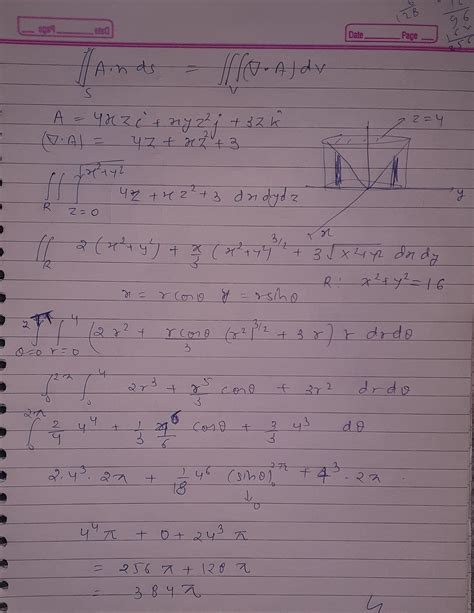 Date Page
∬_S A·n ds = ∭_V (∇·A) dv
A = 4xzi + xyz²j + 3zk
(∇·A) = 4z + xz² + 3
z=4
y
x
∬_R ∫_{z=0}^{√(x²+y²)} 4z + xz² + 3 dxdydz
∬_R 2(x²+y²) + x/3 (x²+y²)^{3/2} + 3√(x²+y²) dxdy
R: x²+y²=16
x = rcosθ y = rsinθ
∫_{θ=0}^{2π} ∫_{r=0}^{4} (2r² + rcosθ/3 (r²)^{3/2} + 3r) r drdθ
∫_0^{2π} ∫_0^4 2r³ + r⁵/3 cosθ + 3r² drdθ
∫_0^{2π} 2/4 4⁴ + 1/3 4⁶/6 cosθ + 3/3 4³ dθ
2·4³·2π + 1/18 4⁶ (sinθ)_0^{2π} + 4³·2π
↓
0
4⁴π + 0 + 24³π
= 256π + 128π
= 384π